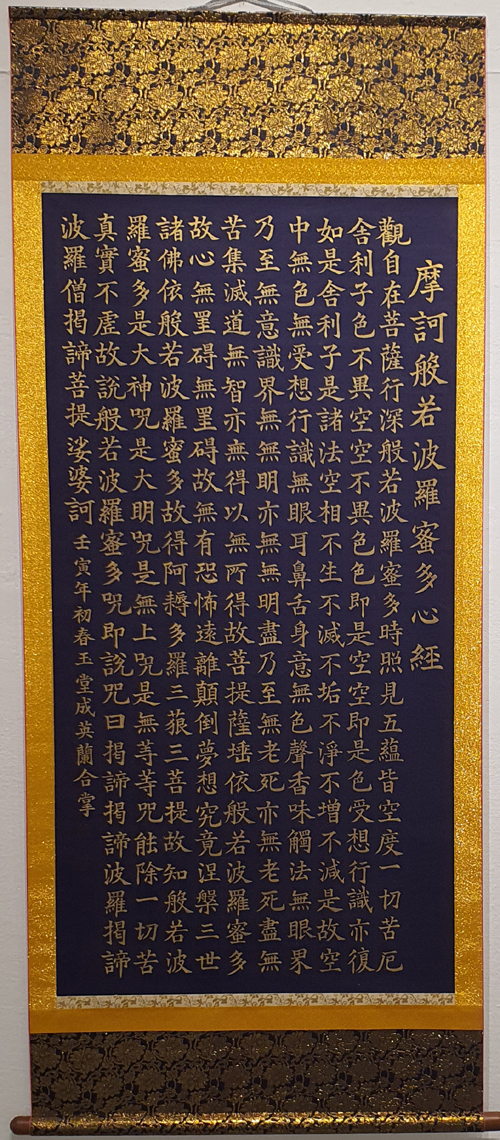 摩訶般若波羅蜜多心經
觀自在菩薩行深般若波羅蜜多時照見五蘊皆空度一切苦厄
舍利子色不異空空不異色色即是空空即是色受想行識亦復
如是舍利子是諸法空相不生不滅不垢不淨不增不減是故空
中無色無受想行識無眼耳鼻舌身意無色聲香味觸法無眼界
乃至無意識界無無明亦無無明盡乃至無老死亦無老死盡無
苦集滅道無智亦無得以無所得故菩提薩埵依般若波羅蜜多
故心無罣碍無罣碍故無有恐怖遠離顛倒夢想究竟涅槃三世
諸佛依般若波羅蜜多故得阿耨多羅三藐三菩提故知般若波
羅蜜多是大神呪是大明呪是無上呪是無等等呪能除一切苦
真實不虛故說般若波羅蜜多呪即說呪曰揭諦揭諦波羅揭諦
波羅僧揭諦菩提娑婆訶 壬寅年初春玉堂成英蘭合掌